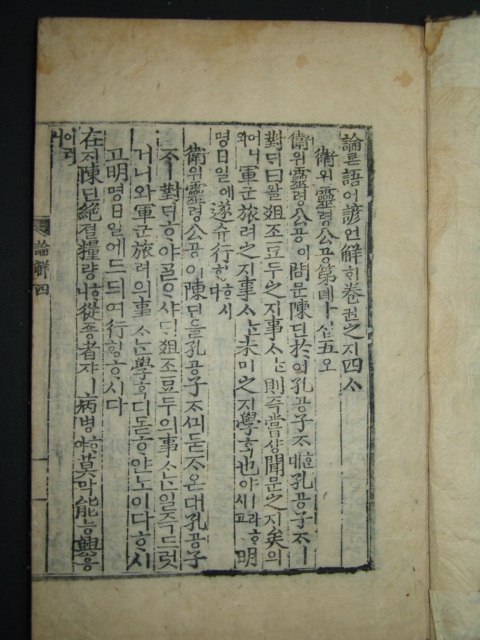 論론語어諺언解ᄒᆡ卷권之지四ᄉᆞ
衛위靈령公공第뎨十십五오
衛위靈령公공이問문陳딘於어孔공子ᄌᆞ대ᄒᆞᆫ孔공子ᄌᆞㅣ
對ᄃᆡ曰왈俎조豆두之지事ᄉᆞᄂᆞᆫ則즉嘗샹聞문之지矣의
어니와軍군旅려之지事ᄉᆞᄂᆞᆫ未미之지學ᄒᆞᆨ也야ㅣ라ᄒᆞ시고明
명日일에遂슈行ᄒᆡᆼᄒᆞ시다
衛위靈령公공이陳딘을孔공子ᄌᆞᄭᅴ묻ᄌᆞ온대孔공子
ᄌᆞㅣ對ᄃᆡᄒᆞ야ᄀᆞᆯᄋᆞ샤ᄃᆡ俎조豆두의事ᄉᆞᄂᆞᆫ일즉드럿
거니와軍군旅려의事ᄉᆞᄂᆞᆫ學ᄒᆞᆨ디몯ᄒᆞ얀노이다ᄒᆞ시
고明명日일에드듸여行ᄒᆡᆼᄒᆞ시다
在ᄌᆡ陳딘絶졀糧량ᄒᆞ니從죵者쟈ㅣ病병ᄒᆞ야莫막能능興흥
이러니
論解 四